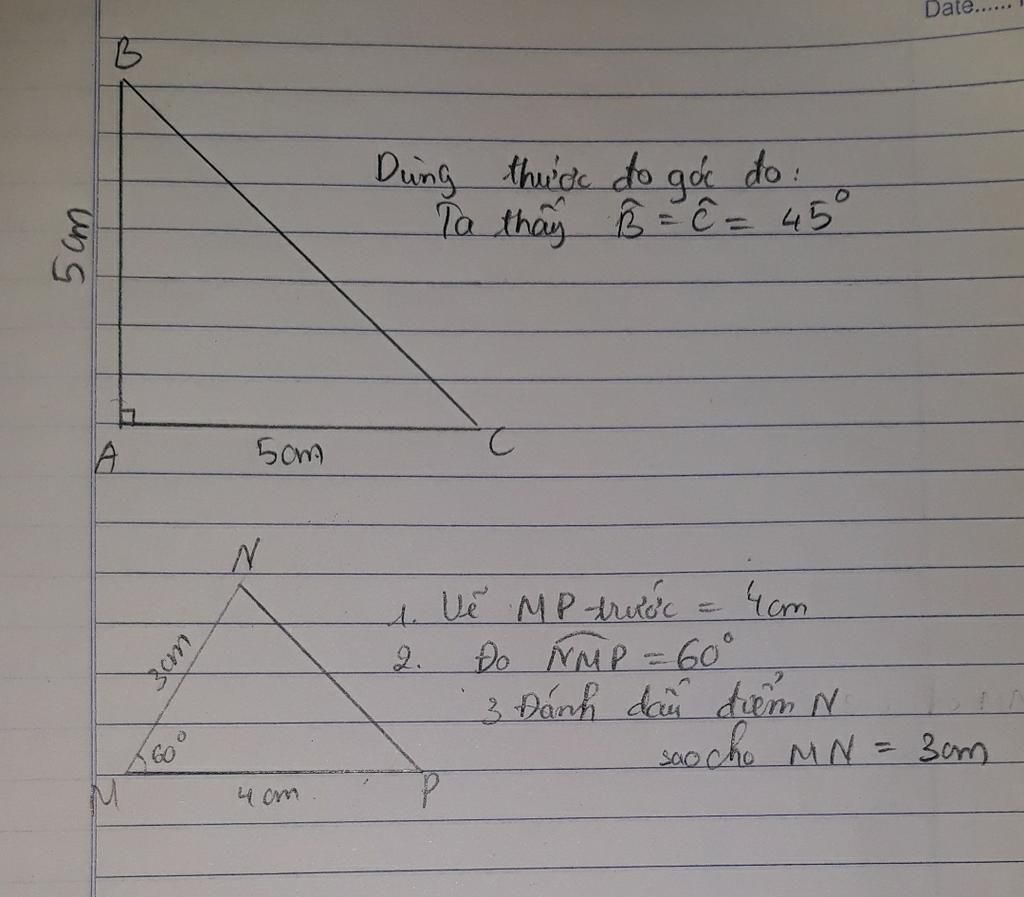 Date......
B
Dùng thước đo góc đo:
Ta thấy B̂ = Ĉ = 45°
5cm
A
5cm
C
N
1. Vẽ MP trước = 4cm
3cm
2. Đo NMP = 60°
3 Đánh dấu điểm N
60°
sao cho MN = 3cm
M
4cm
P